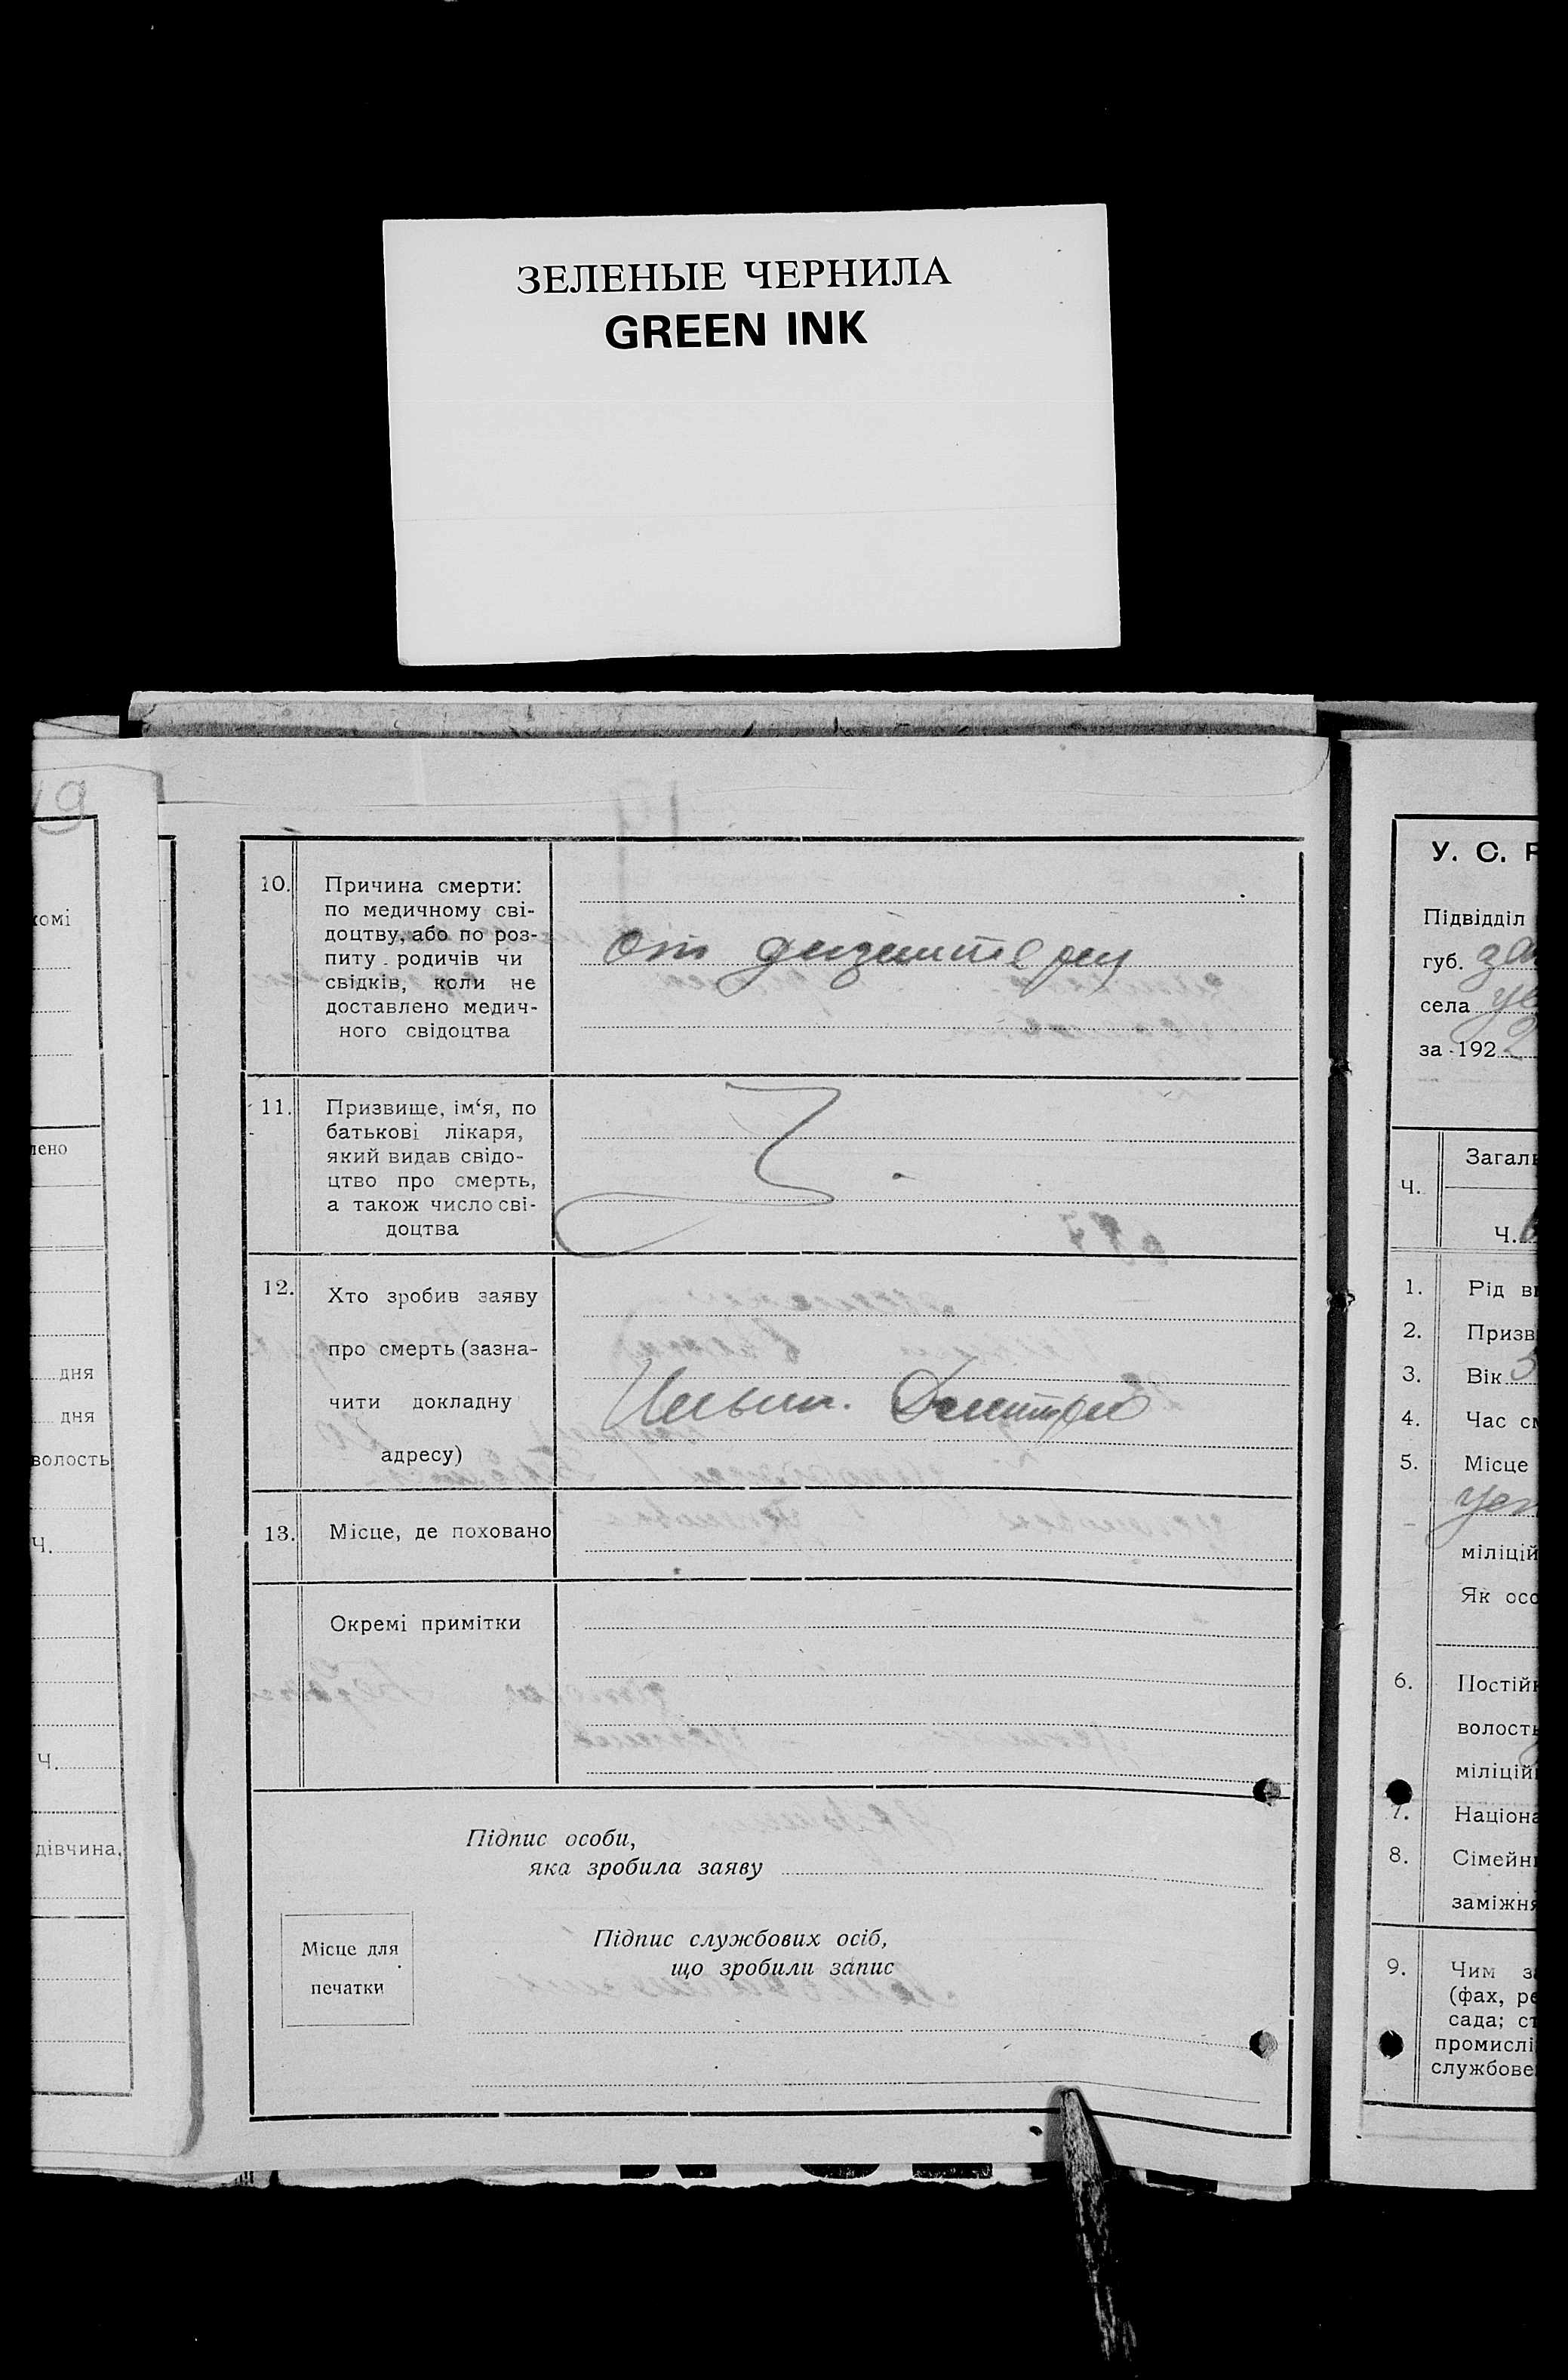 ЗЕЛЕНЫЕ ЧЕРНИЛА
GREEN INK
19
комі
лено
дня
дня
волость
Ч.
Ч.
дівчина,
10.
Причина смерти:
по медичному сві-
доцтву, або по роз-
питу родичів чи
свідків, коли не
доставлено медич-
ного свідоцтва
от дизентерии
11.
Призвище, ім‘я, по
батькові лікаря,
який видав свідо-
цтво про смерть,
а також число сві-
доцтва
12.
Хто зробив заяву
про смерть (зазна-
чити докладну
адресу)
Дмитрий
13.
Місце, де поховано
Окремі примітки
Підпис особи,
яка зробила заяву
Місце для
печатки
Підпис службових осіб,
що зробили запис
У. С. Р
Підвідділ
губ.
села
за 192
Ч.
Загаль
Ч.
1. Рід в
2. Призв
3. Вік
4. Час см
5. Місце
міліцій
Як осо
6. Постій
волость
міліцій
7. Націона
8. Сімейн
заміжня
9. Чим з
(фах, ре
сада; ст
промислі
службове